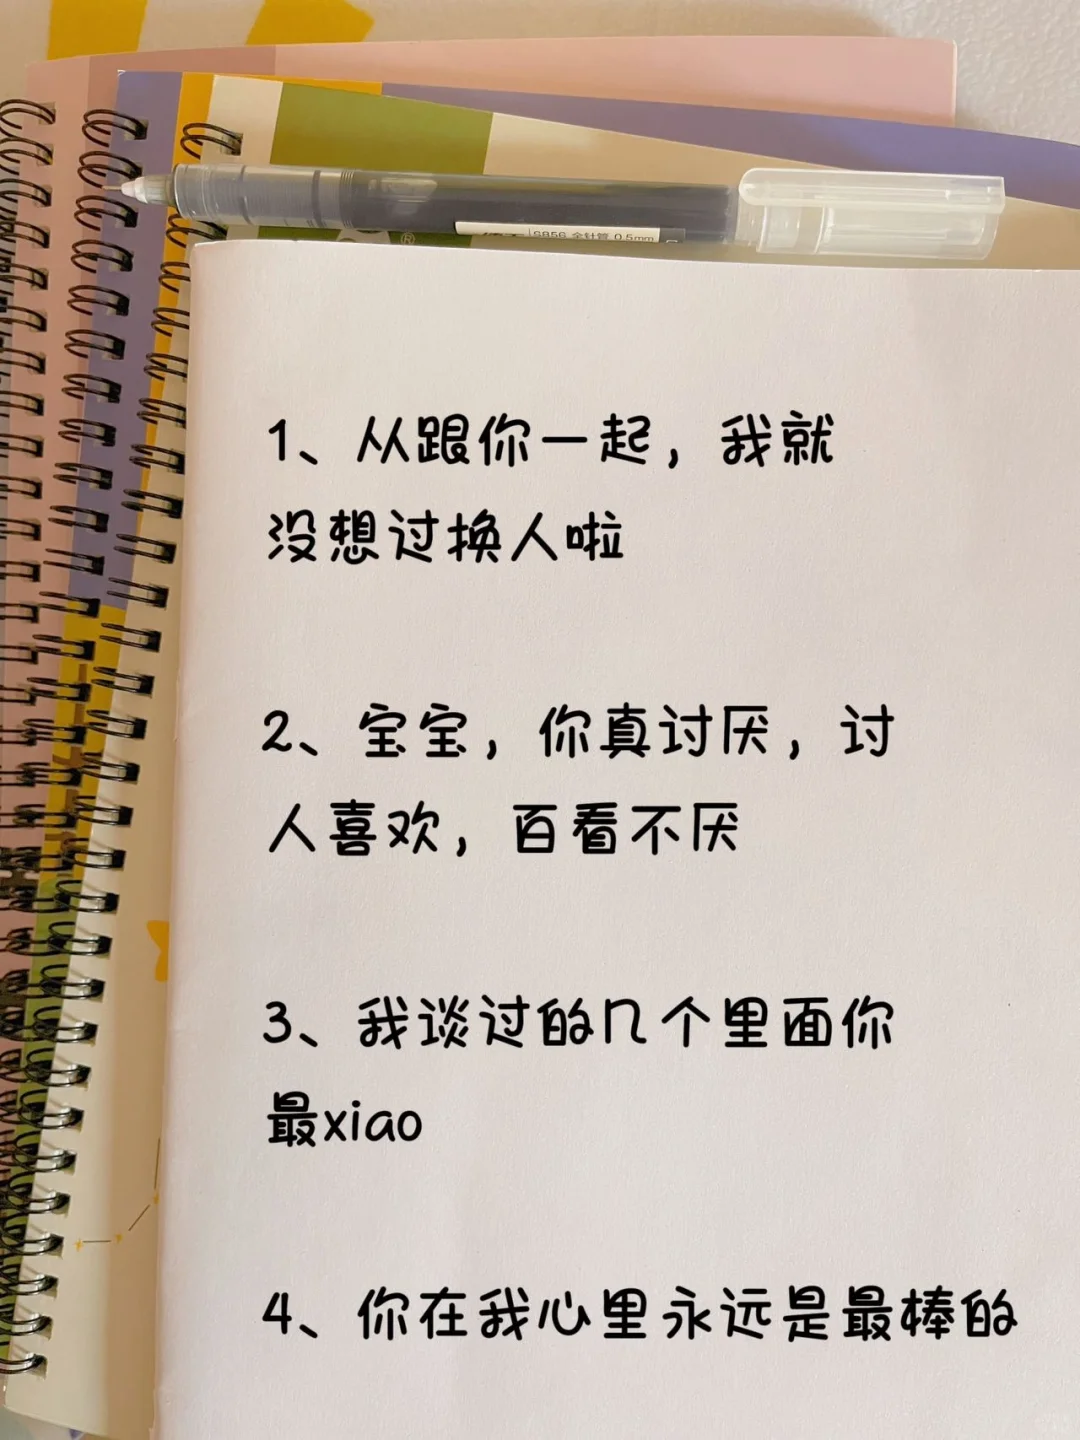 S856 全针管 0.5mm
®
1、从跟你一起，我就
没想过换人啦
2、宝宝，你真讨厌，讨
人喜欢，百看不厌
3、我谈过的几个里面你
最xiao
4、你在我心里永远是最棒的